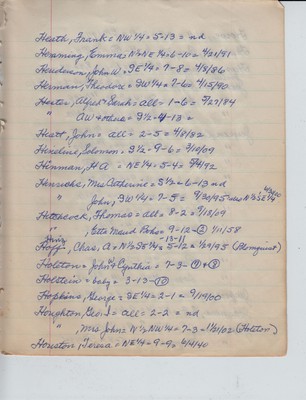 Heath, Frank = NW¼ = 5-13 = nd
Hemming, Emma = N½NE¼ = 6-10 = 4/21/91
Henderson, John W = SE¼ = 7-8 = 4/8/86
Herman, Theodore = SW¼ = 7-6 = 4/15/90
Hester, Alfred = Sarah = all = 1-6 = 3/27/84
" AW & other = S½ - 4-13 =
Hett, John = all = 2-5 = 4/8/82
Hezeline, Solomon = S½ - 9-6 = 3/10/09
Hinman, H A = NE¼ = 5-4 = 5/4/92
Hinrichs, Mrs Catherine = S½ = 6-13 = nd
" John, SW¼ = 7-5 = N½SE¼
Hitchcock, Thomas = all = 8-2 = 3/18/09
" Etta Maud = 9-12 - ② 1/11/58
Hoff, Chas, A = N½SE¼ = 5-12 = 1/24/95 (Blomquist)
Holston = John & Cynthia = 7-3 - ① & ②
Holstein = baby = 3-13 - ⑩
Hopkins, George = SE¼ = 2-1 = 9/19/00
Houghton, Geo. I = all = 2-2 = nd
" Mrs John = W½NW¼ = 7-3 = 11/21/02 (Holston)
Houston, Teresa = NE¼ = 9-9 = 6/4/40